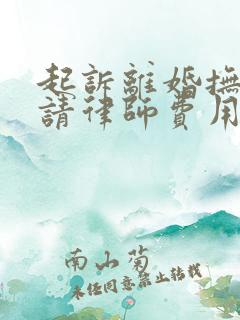 起訴離婚撫
請律師費用
南山菊
未經同意禁止轉載